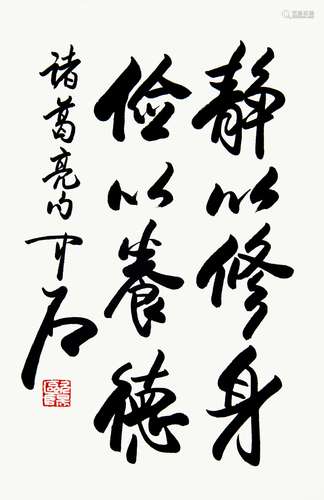 静以修身
俭以養德
诸葛亮句 中石